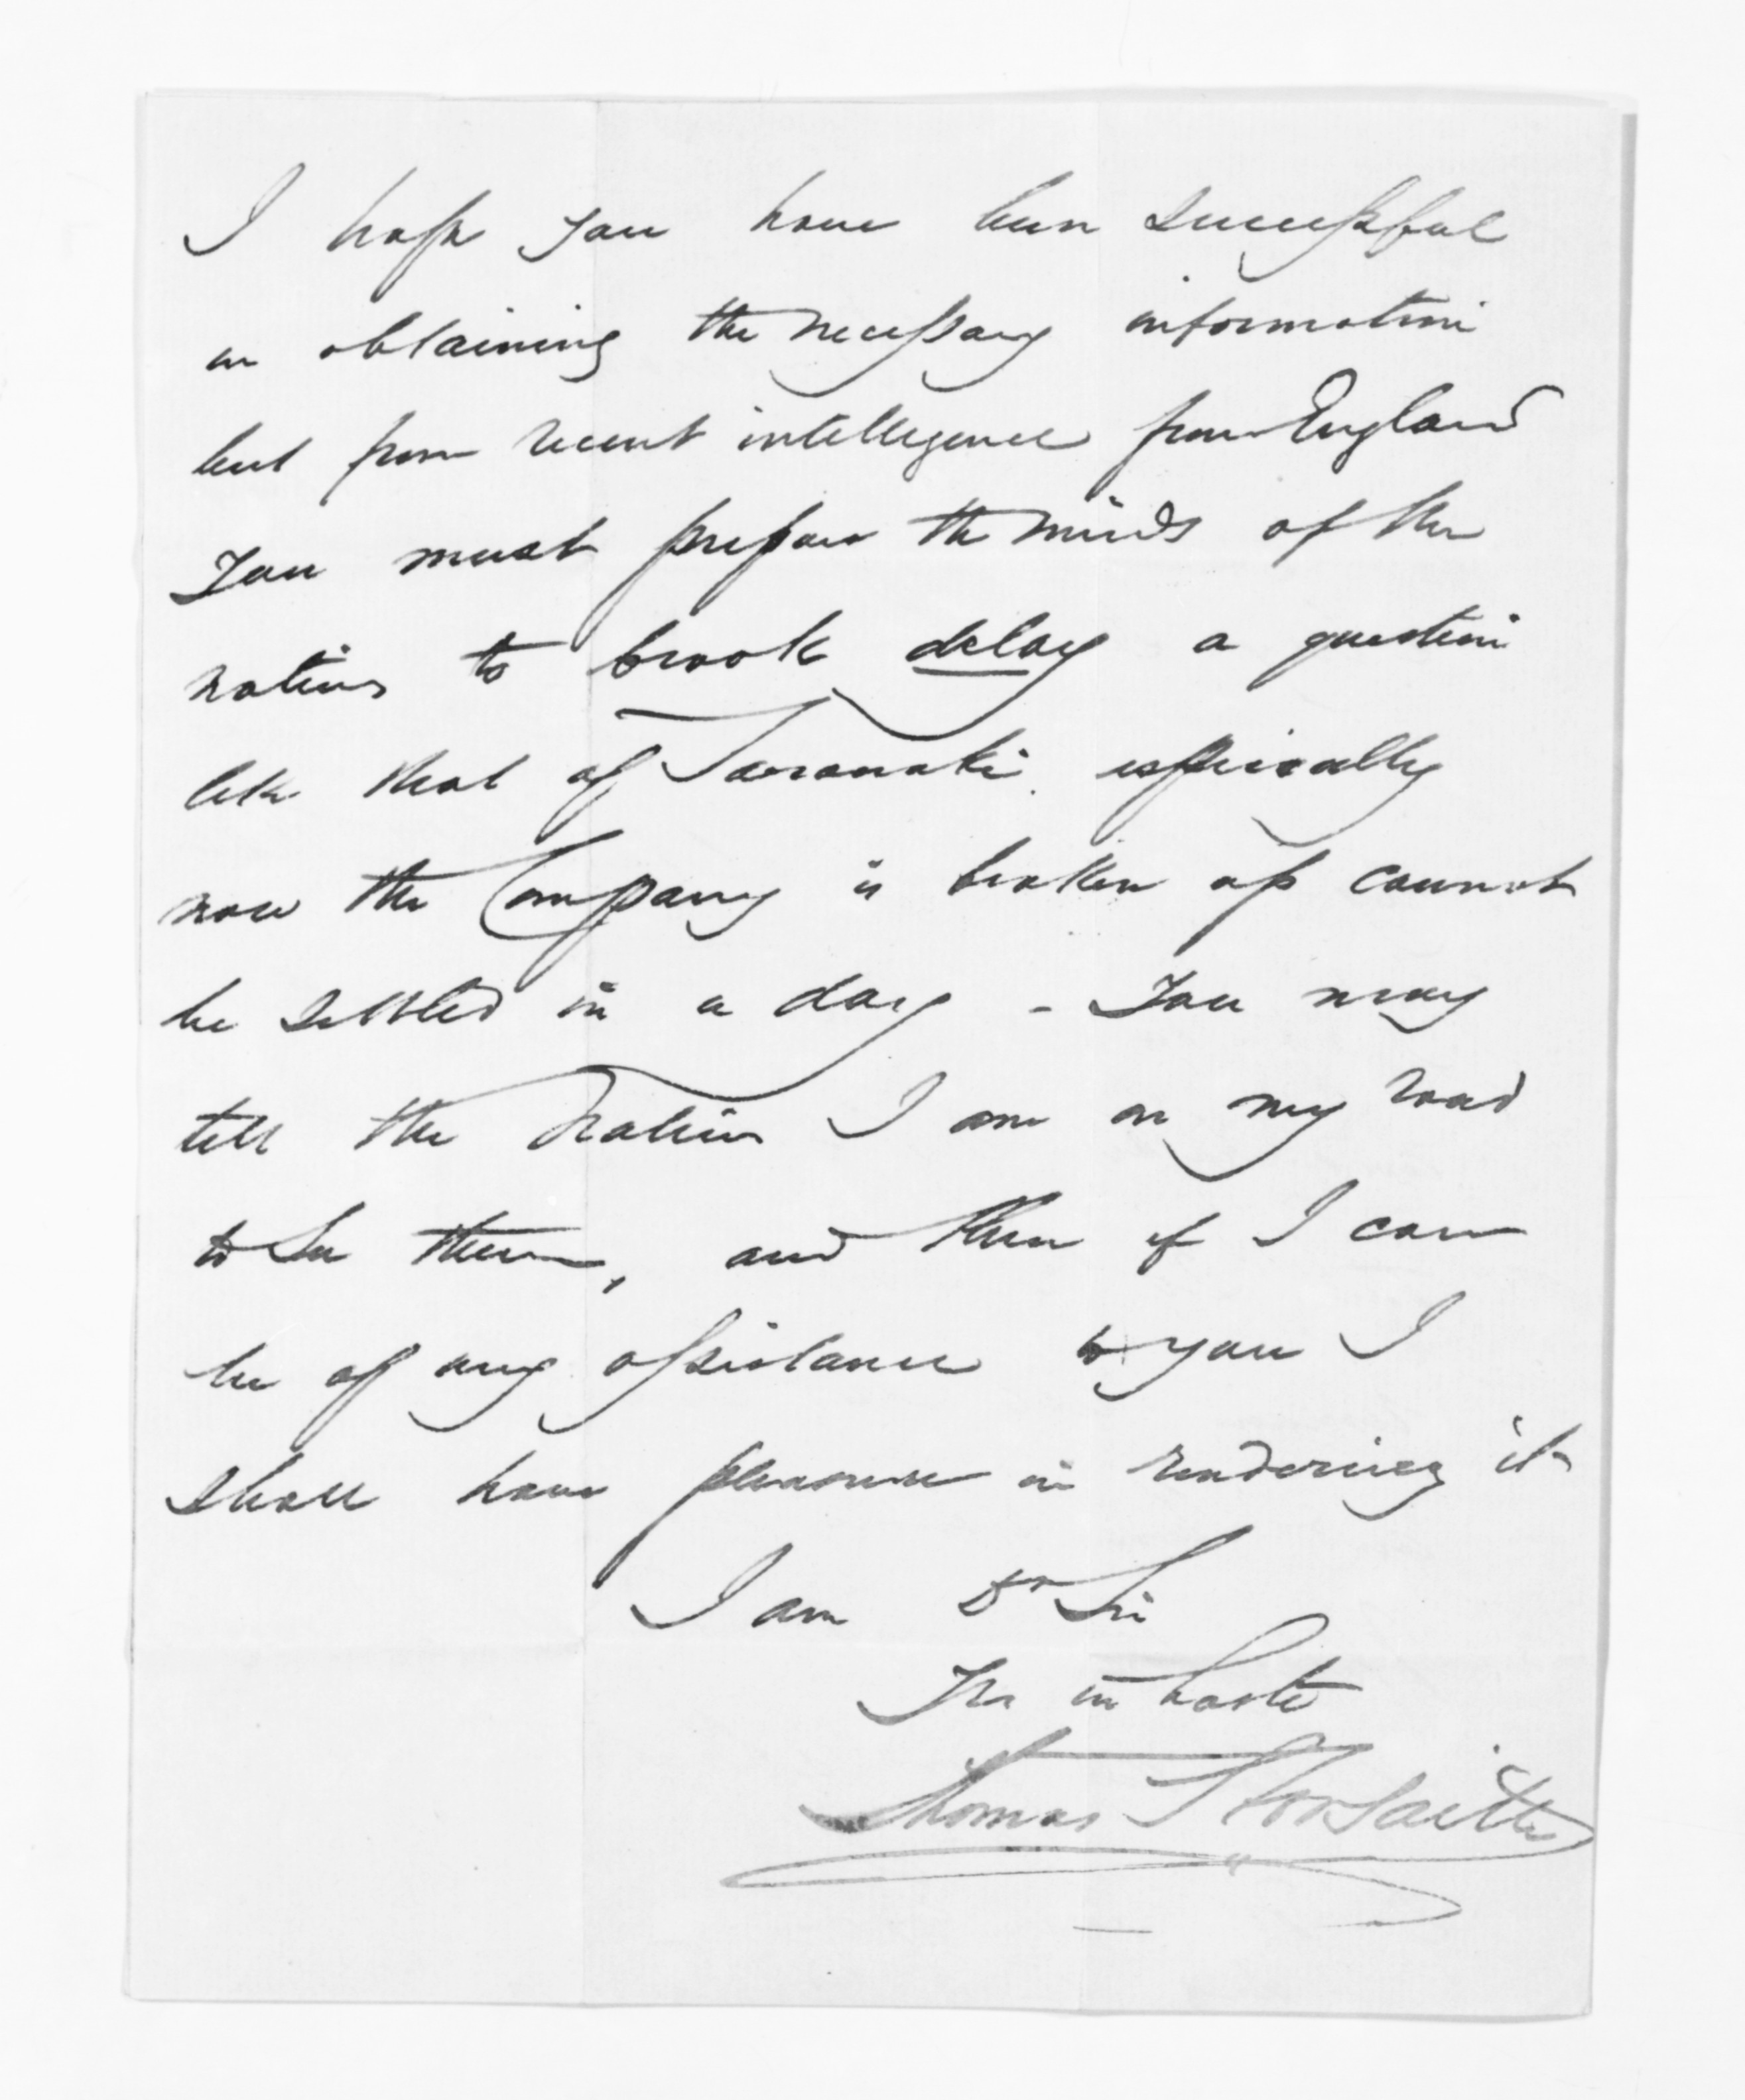 I hope you have been successful
in obtaining the necessary information
but from recent intelligence from England
you must prepare the minds of the
natives to brook delay a question
like that of Taranaki especially
now the Company is broken up cannot
be settled in a day - You may
tell the natives I am on my road
to see them, and then if I can
be of any assistance to you I
shall have pleasure in rendering it
I am Dr Sir
Yrs in haste
Thomas S Forsaith